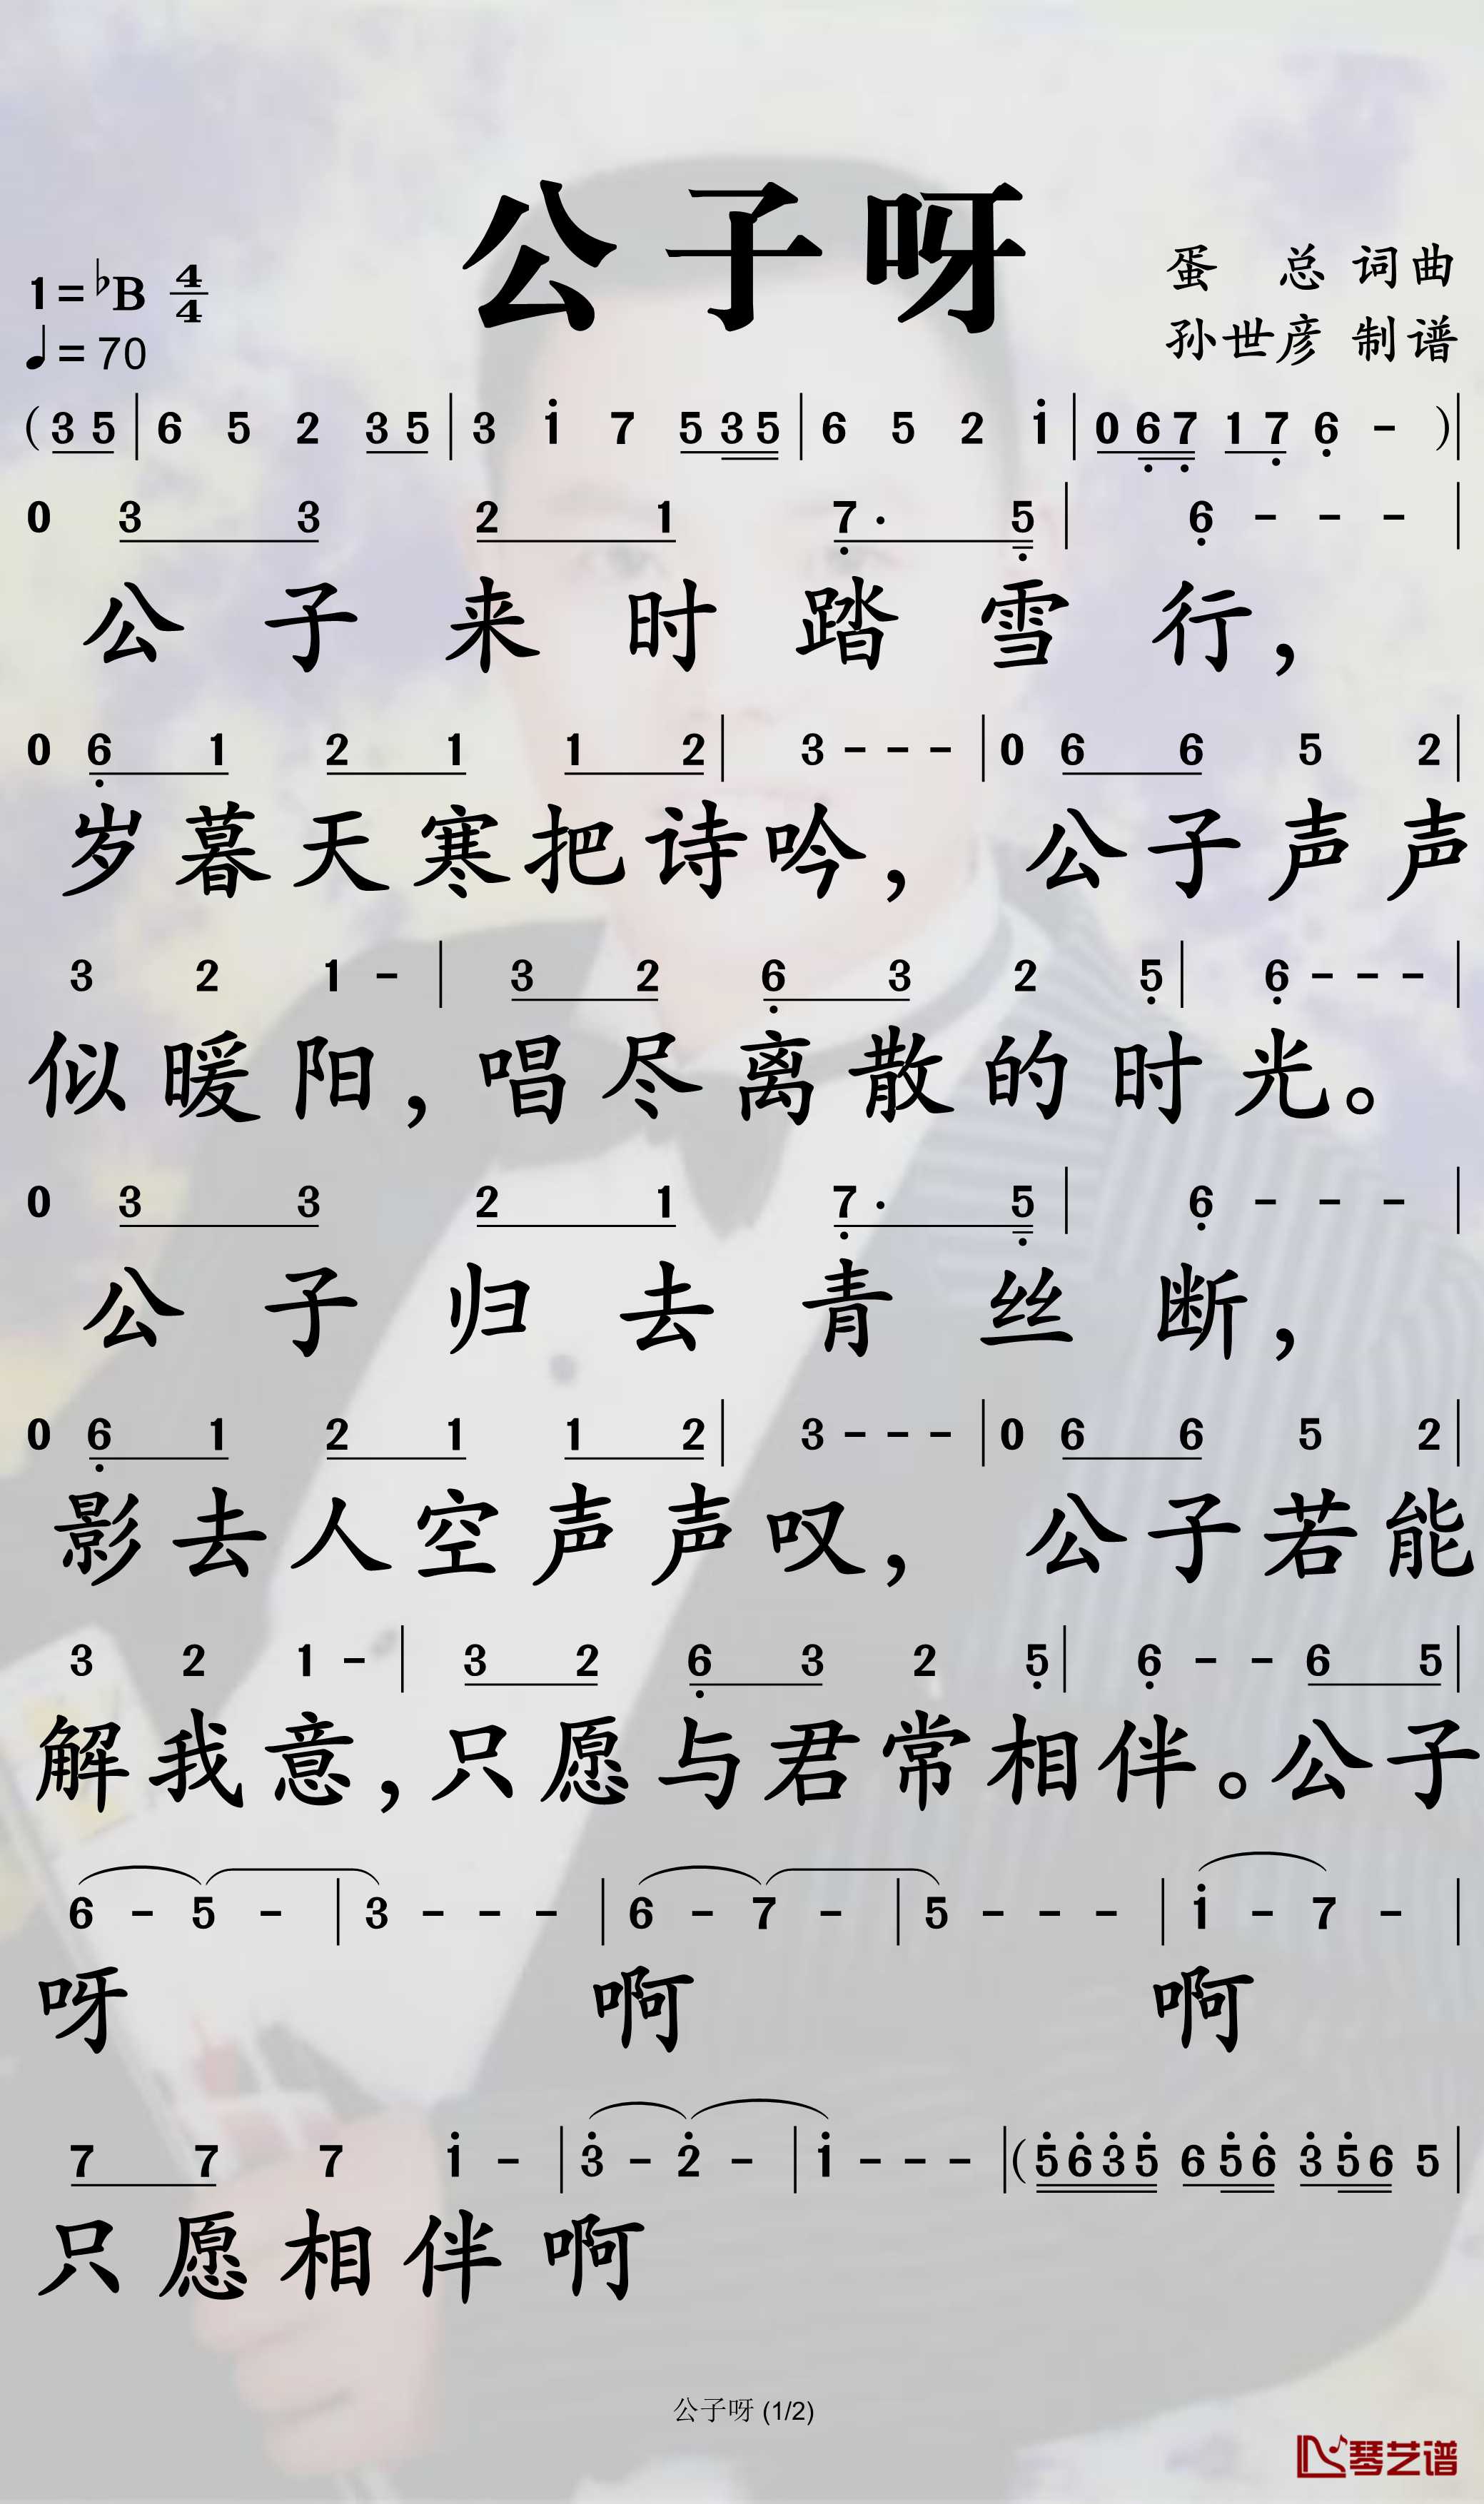 公子呀
1=♭B 4/4
♩=70
蛋 总 词曲
孙世彦 制谱
(3 5 | 6 5 2 3 5 | 3 i 7 5 3 5 | 6 5 2 i | 0 6 7 1 7 6 - )|
0 3 3 2 1 7 · 5 | 6 - - - |
公 子 来 时 踏 雪 行，
0 6 1 2 1 1 2 | 3 - - - | 0 6 6 5 2 |
岁暮天寒把诗吟， 公子声声
3 2 1 - | 3 2 6 3 2 5 | 6 - - - |
似暖阳，唱尽离散的时光。
0 3 3 2 1 7 · 5 | 6 - - - |
公 子 归 去 青 丝 断，
0 6 1 2 1 1 2 | 3 - - - | 0 6 6 5 2 |
影去人空声声叹， 公子若能
3 2 1 - | 3 2 6 3 2 5 | 6 - - 6 5 |
解我意，只愿与君常相伴。公子
6 - 5 - | 3 - - - | 6 - 7 - | 5 - - - | i - 7 - |
呀 啊 啊
7 7 7 i - | 3 - 2 - | i - - - | (5 6 3 5 6 5 6 3 5 6 5 |
只愿相伴啊
公子呀 (1/2)
琴艺谱